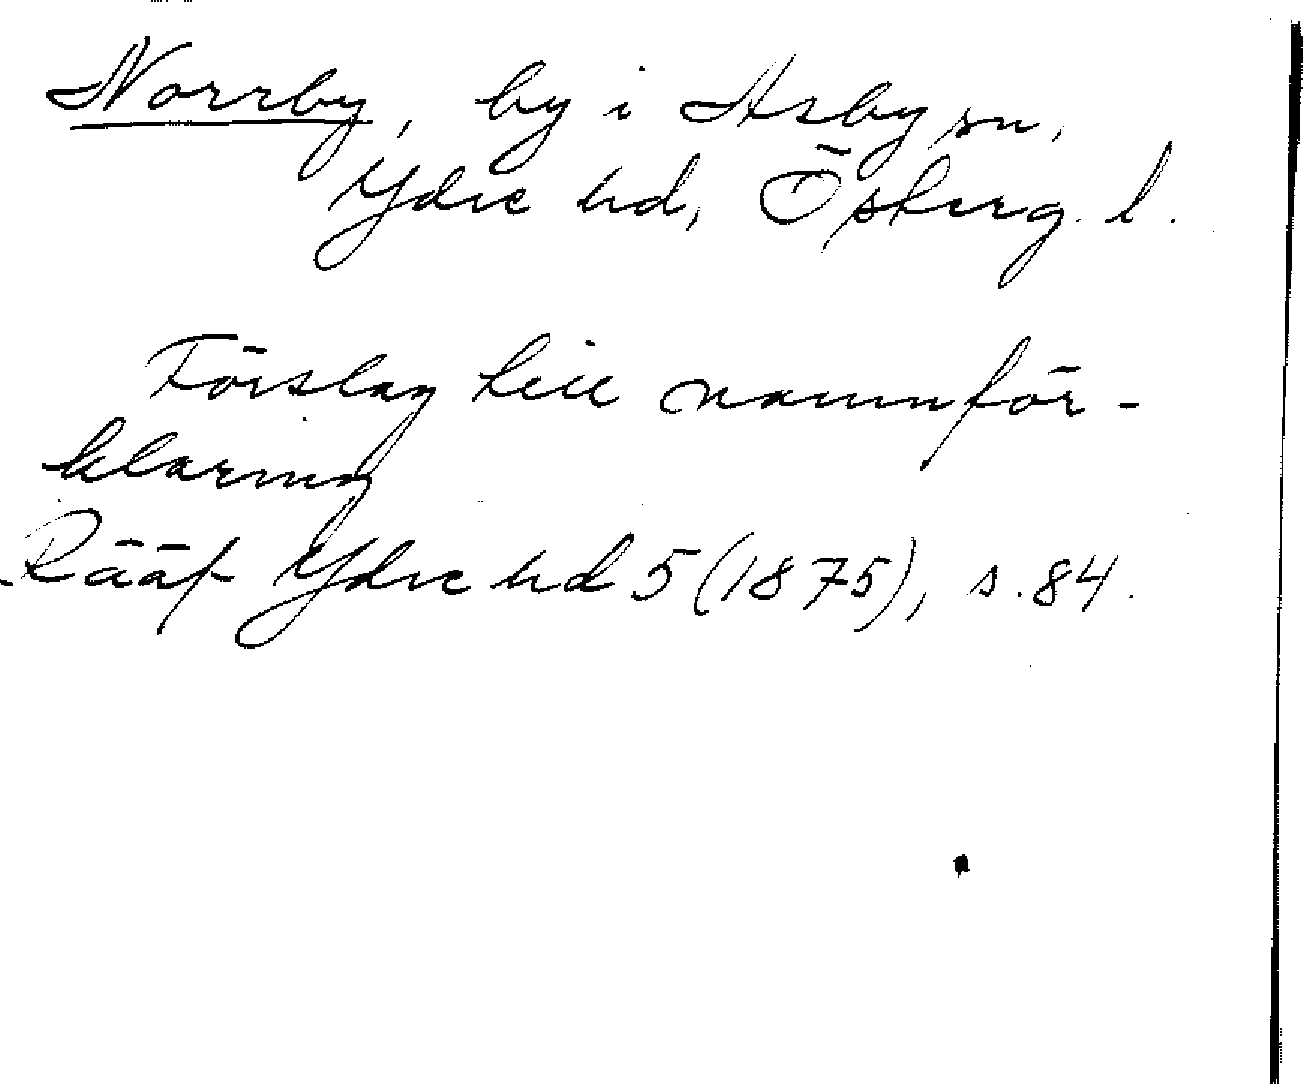 Norrby, by i Asby sn,
Ydre hd, Österg. l.
Förslag till namnför-
klaring
Rääf Ydre hd 5 (1875), s. 84.